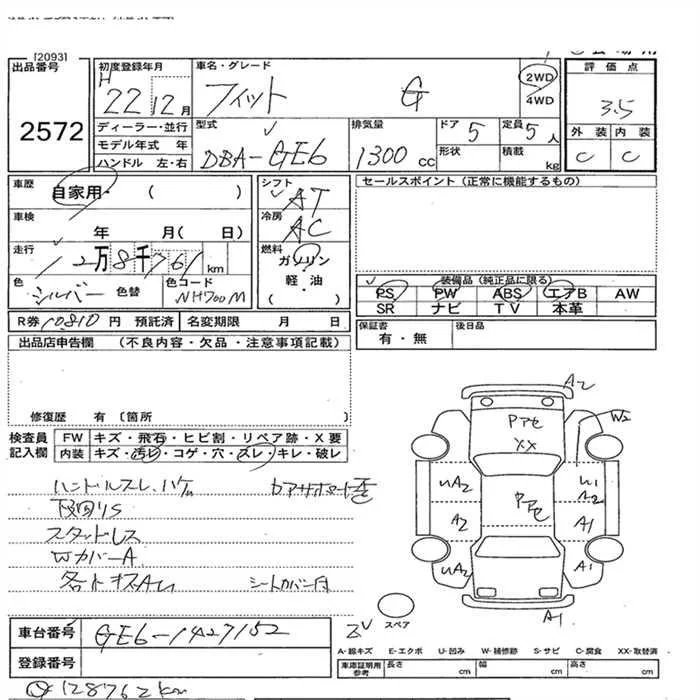 [2093]
出品番号 初度登録年月 車名・グレード 2WD 評価点
2572 H 22 12月 フィット G 4WD 3.5
ディーラー・並行 型式 排気量 ドア 5 定員 5人 外装 内装
モデル年式 年 DBA-GE6 1300cc 形状 積載 kg C C
ハンドル 左・右
車歴 自家用・( ) シフト AT セールスポイント (正常に機能するもの)
車検 年 月( 日) 冷房 AC
走行 12万8千761km 燃料 ガソリン
軽・油
( )
色 シルバー 色替 色コード NH700M 装備品 (純正品に限る)
PS PW ABS エアB AW
SR ナビ TV 本革
R券 10,810円 預託済 名変期限 月 日 保証書 有・無 後日品
出品店申告欄 (不良内容・欠品・注意事項記載)
修復歴 有 [箇所 ]
検査員記入欄 FW キズ・飛石・ヒビ割・リペア跡・X要
内装 キズ・汚レ・コゲ・穴・スレ・キレ・破レ
ハンドルスレ、ハゲ
下回リS
スタッドレス
WカバーA
シートカバー付
A2
Pアセ
XX
W2
UA2
A2
UA2
U1
A2
A1
A1
A1
スペア
A-線キズ E-エクボ U-凹み W-補修跡 S-サビ C-腐食 XX-取替済
車台番号 GE6-1427152
登録番号
車庫証明用参考 長さ cm 幅 cm 高さ cm
128762km